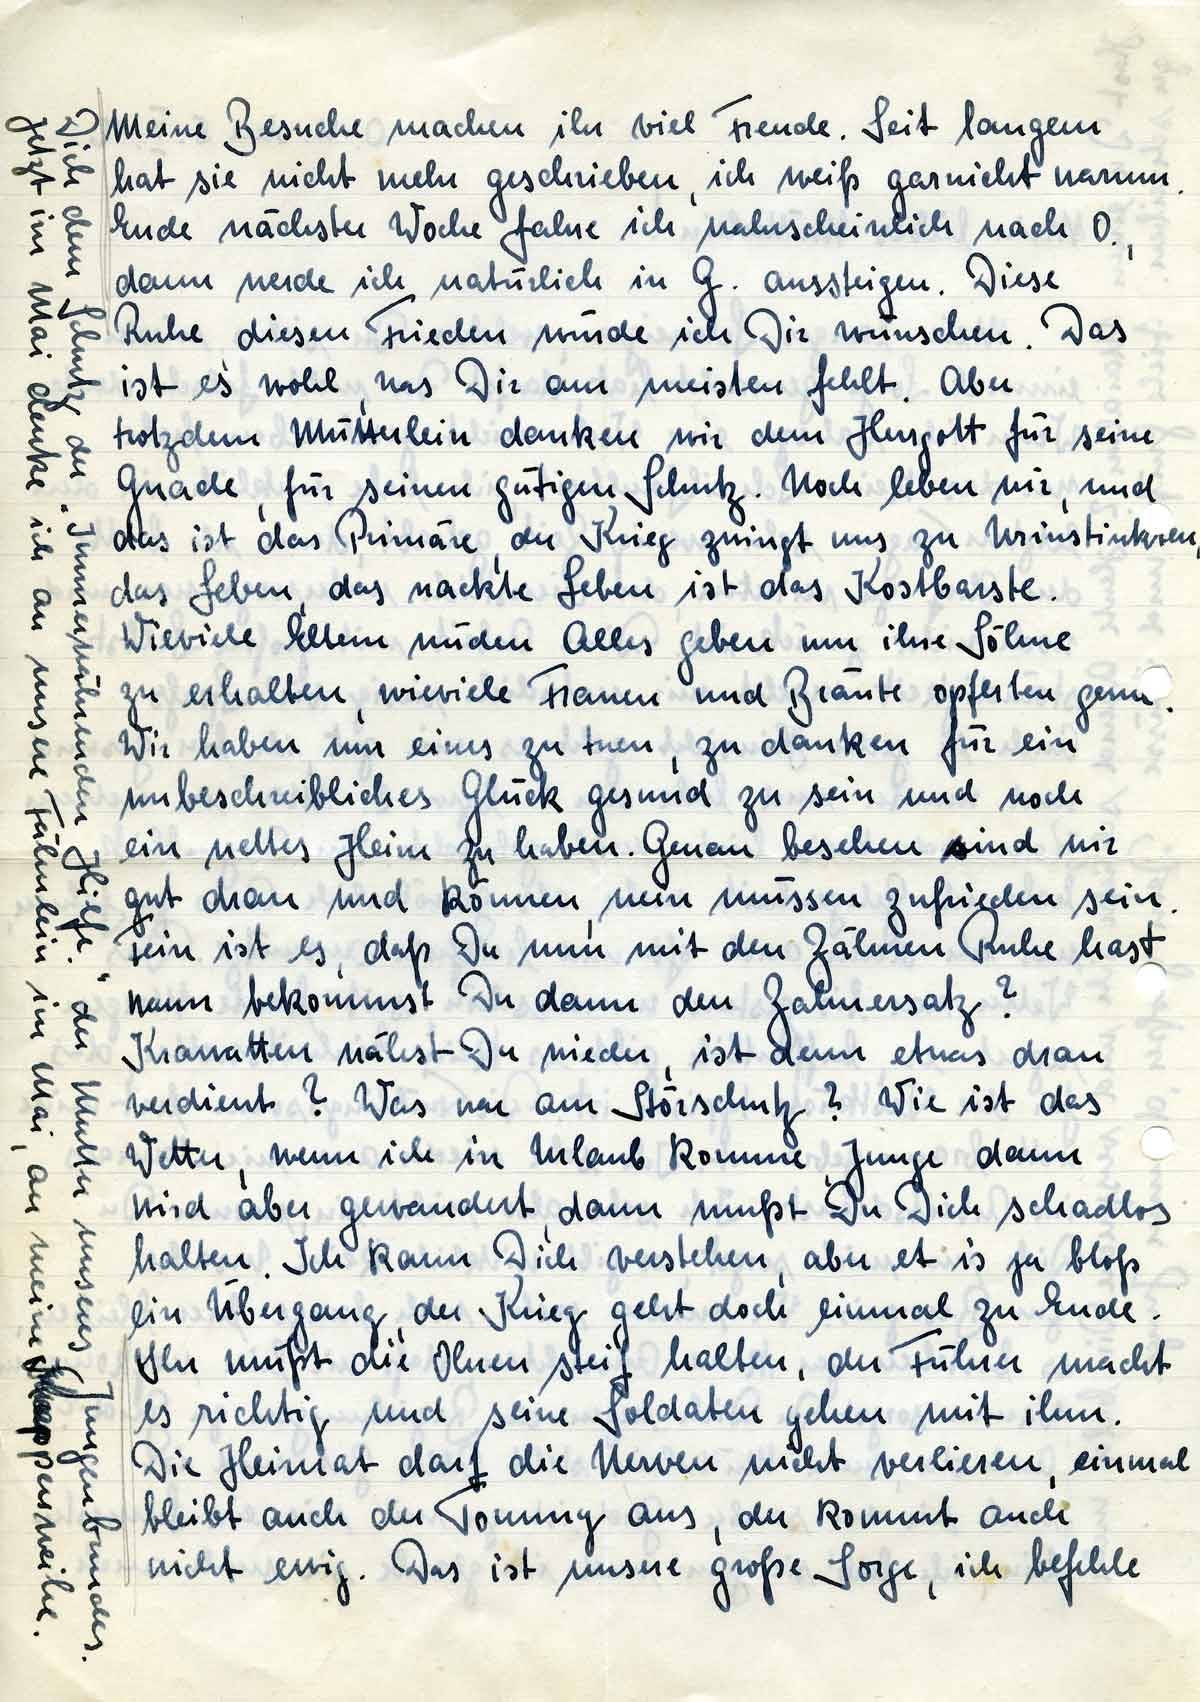 Meine Besuche machen ihr viel Freude. Seit langem
hat sie nicht mehr geschrieben, ich weiß garnicht warum.
Ende nächster Woche fahre ich wahrscheinlich nach O.,
dann werde ich natürlich in G. aussteigen. Diese
Ruhe diesen Frieden würde ich Dir wünschen. Das
ist es wohl, was Dir am meisten fehlt. Aber
trotzdem Mütterlein danken wir dem Herrgott für seine
Gnade, für seinen gütigen Schutz. Noch leben wir, und
das ist das Primäre, der Krieg zwingt uns zu Urinstinkten,
das Leben, das nackte Leben ist das Kostbarste.
Wieviele Eltern würden Alles geben um ihre Söhne
zu erhalten, wieviele Frauen und Bräute opferten gern.
Wir haben nur eines zu tuen, zu danken für ein
unbeschreibliches Glück gesund zu sein und noch
ein nettes Heim zu haben. Genau besehen sind wir
gut dran und können, nein müssen zufrieden sein.
Fein ist es, daß Du nun mit den Zähnen Ruhe hast
wann bekommst Du dann den Zahnersatz?
Krawatten nähst Du wieder, ist denn etwas dran
verdient? Was war am Störschutz? Wie ist das
Wetter, wenn ich in Urlaub komme, Junge dann
wird aber gewandert, dann mußt Du Dich schadlos
halten. Ich kann Dich verstehen, aber et is ja bloß
ein Übergang, der Krieg geht doch einmal zu Ende.
Ihr müßt die Ohren steif halten, der Führer macht
es richtig und seine Soldaten gehen mit ihm.
Die Heimat darf die Nerven nicht verlieren, einmal
bleibt auch der Tommy aus, der kommt auch
nicht ewig. Das ist unsere große Sorge, ich befehle
Dich dem Schutz der "Immerwährenden Hilfe." der Mutter unseres Jungenbundes.
Jetzt im Mai denke ich an unsere Fähnlein im Mai, an meine Knappenweihe.